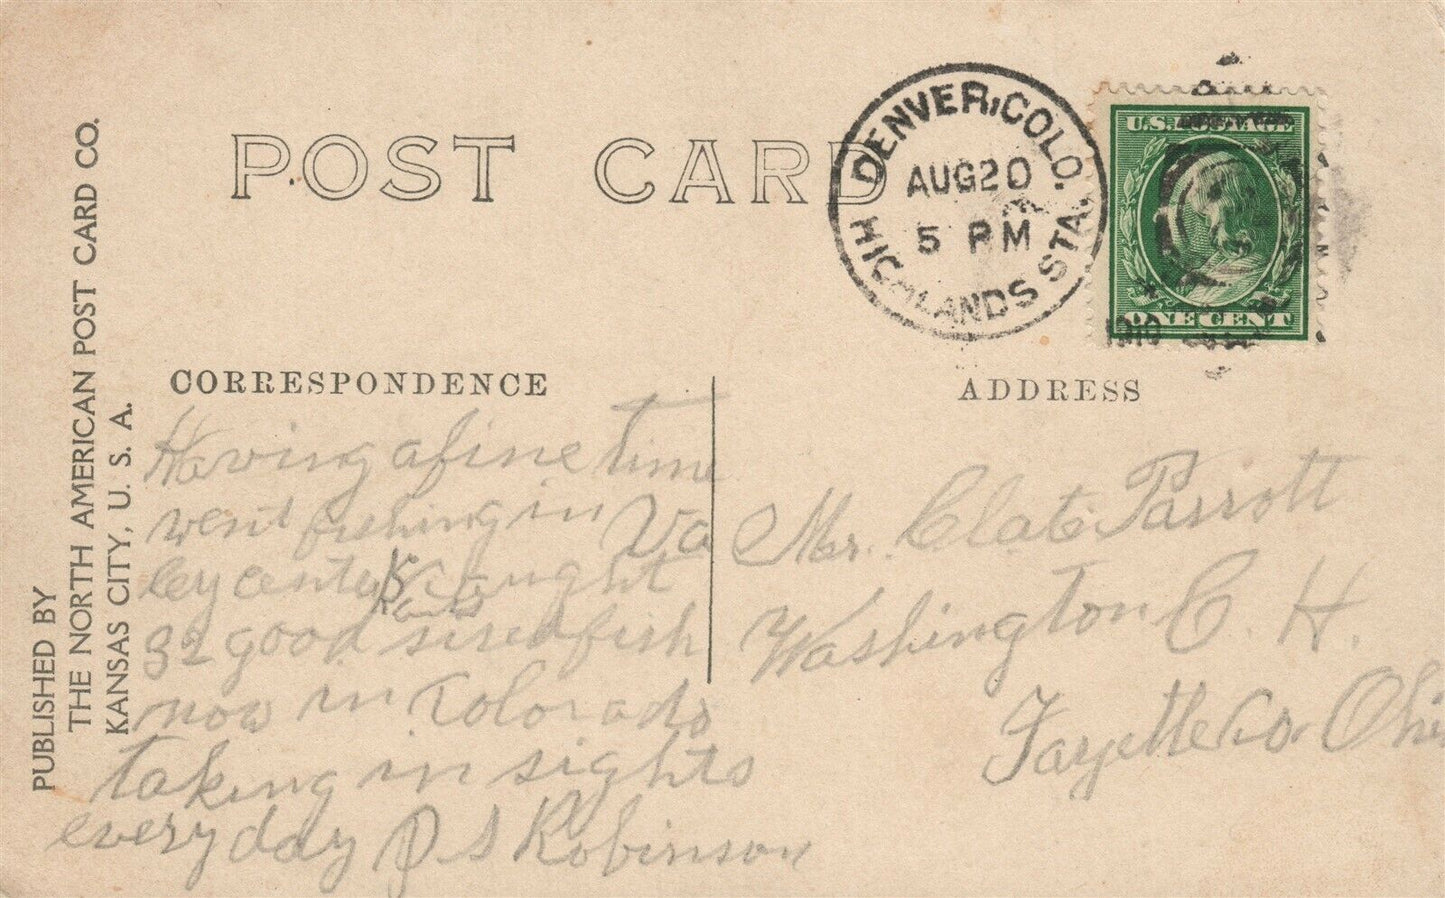 POST CARD
DENVER, COLO.
AUG 20
5 PM
HIGHLANDS STA.
1910
U.S. POSTAGE
ONE CENT
PUBLISHED BY
THE NORTH AMERICAN POST CARD CO.
KANSAS CITY, U. S. A.
CORRESPONDENCE
Having a fine time
went fishing in Va
ley center caught
Kans
32 good sised fish
now in Colorado
taking in sights
every day P S Robinson
ADDRESS
Mr. Clate Parrott
Washington C. H.
Fayette Co. Ohio